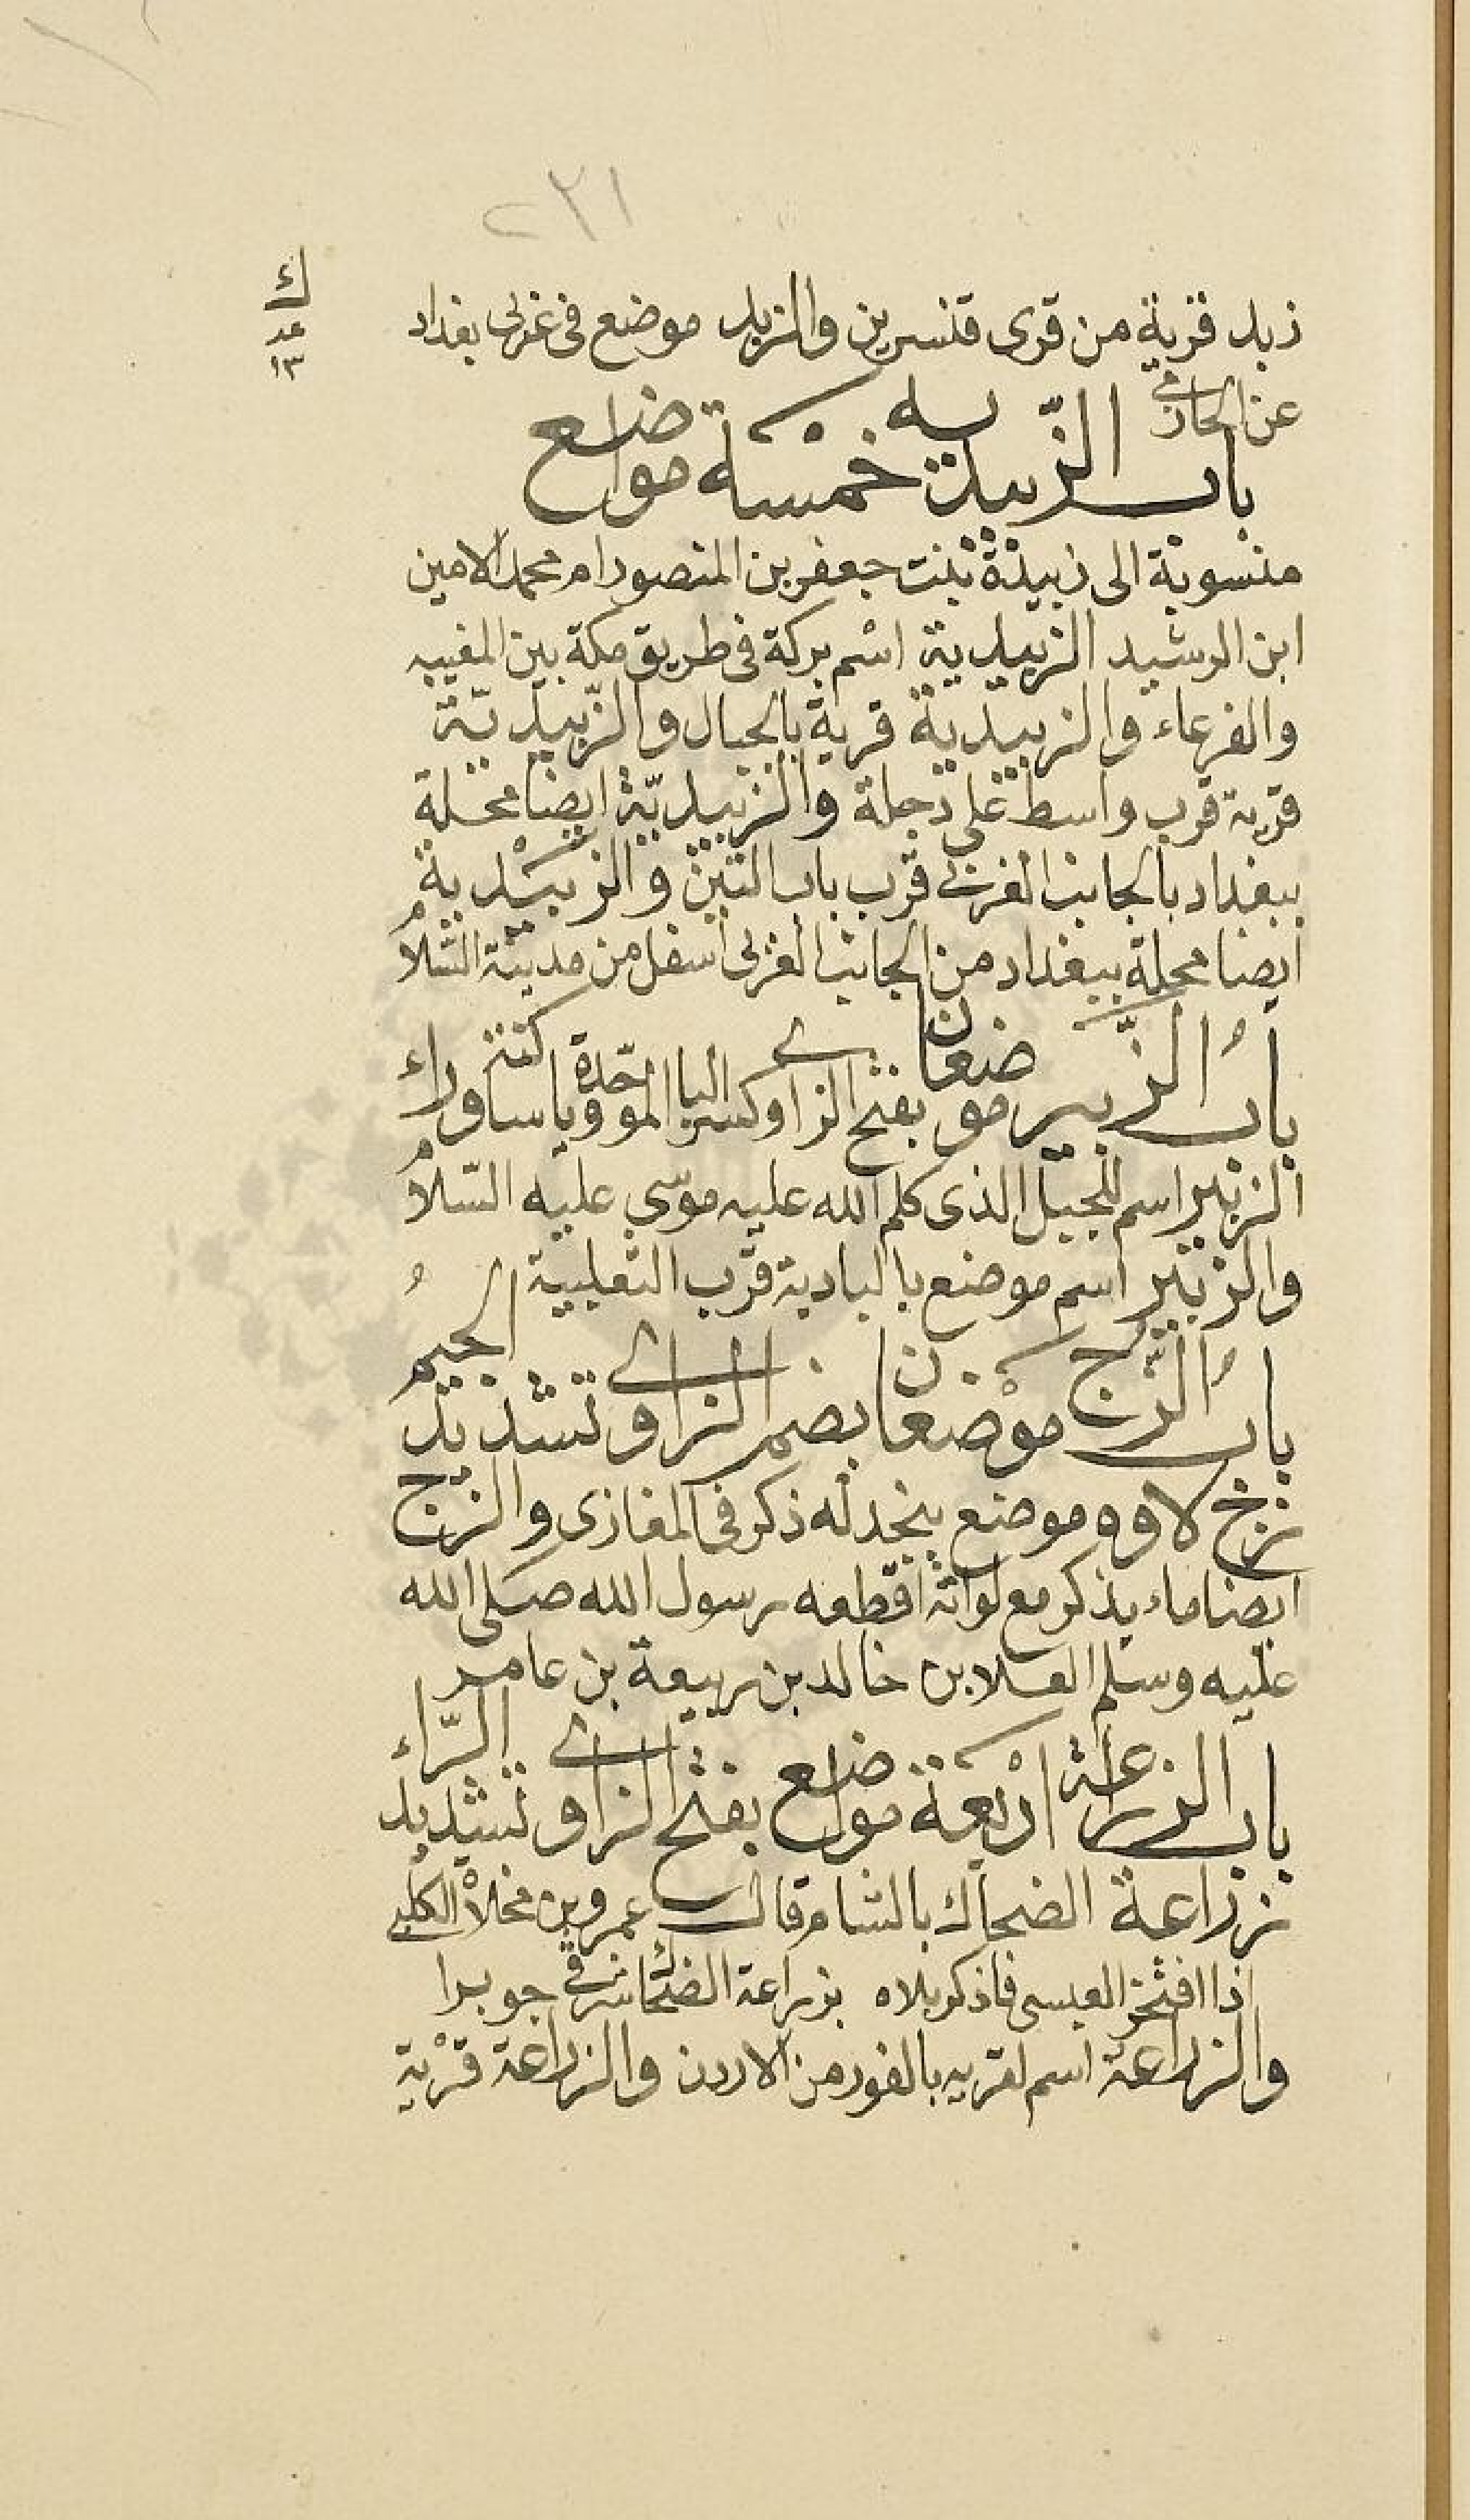 ٢٣١
ك
عد
١٣
زبد قرية من قرى قنسرين والزبد موضع فى غربى بغداد
عن الحازمي
باب الزّبيدية خمسة مواضع
منسوبة الى زبيدة بنت جعفر بن المنصور ام محمد الامين
ابن الرشيد الزبيدية اسم بركة فى طريق مكة بين المغيبه
والقرعاء والزبيدية قرية بالجبال والزّبيديّة
قرية قرب واسط على دجلة والزبيديّة ايضا محلة
ببغداد بالجانب الغربي قرب باب التبن والزبيدية
ايضا محلة ببغداد من الجانب الغربى اسفل من مدينة السّلام
بابُ الزَّبير موضعان بفتح الزاي وكسر البا الموحّدة ويا ساكنة وراء
الزبير اسم للجبل الذى كلم الله عليه موسى عليه السّلام
والزبير اسم موضع بالبادية قرب الثعلبية
بابُ الزُّج موضعان بضم الزاي وتشديد الجيم
زج لاوه موضع بنجد له ذكر فى المغازى والزج
ايضا ماء يذكر مع لواثة اقطعه رسول الله صلى الله
عليه وسلم العلا بن خالد بن ربيعة بن عامر
باب الزراعة اربعة مواضع بفتح الزاي وتشديد الرّاء
زراعة الضحاك بالشام قال عمرو بن مخلاة الكلبي
اذا افتخر العبسى فاذكر بلاه بزراعة الضحاك شرقي جوبرا
والزراعة اسم لقريه بالغور من الاردن والزراعة قرية